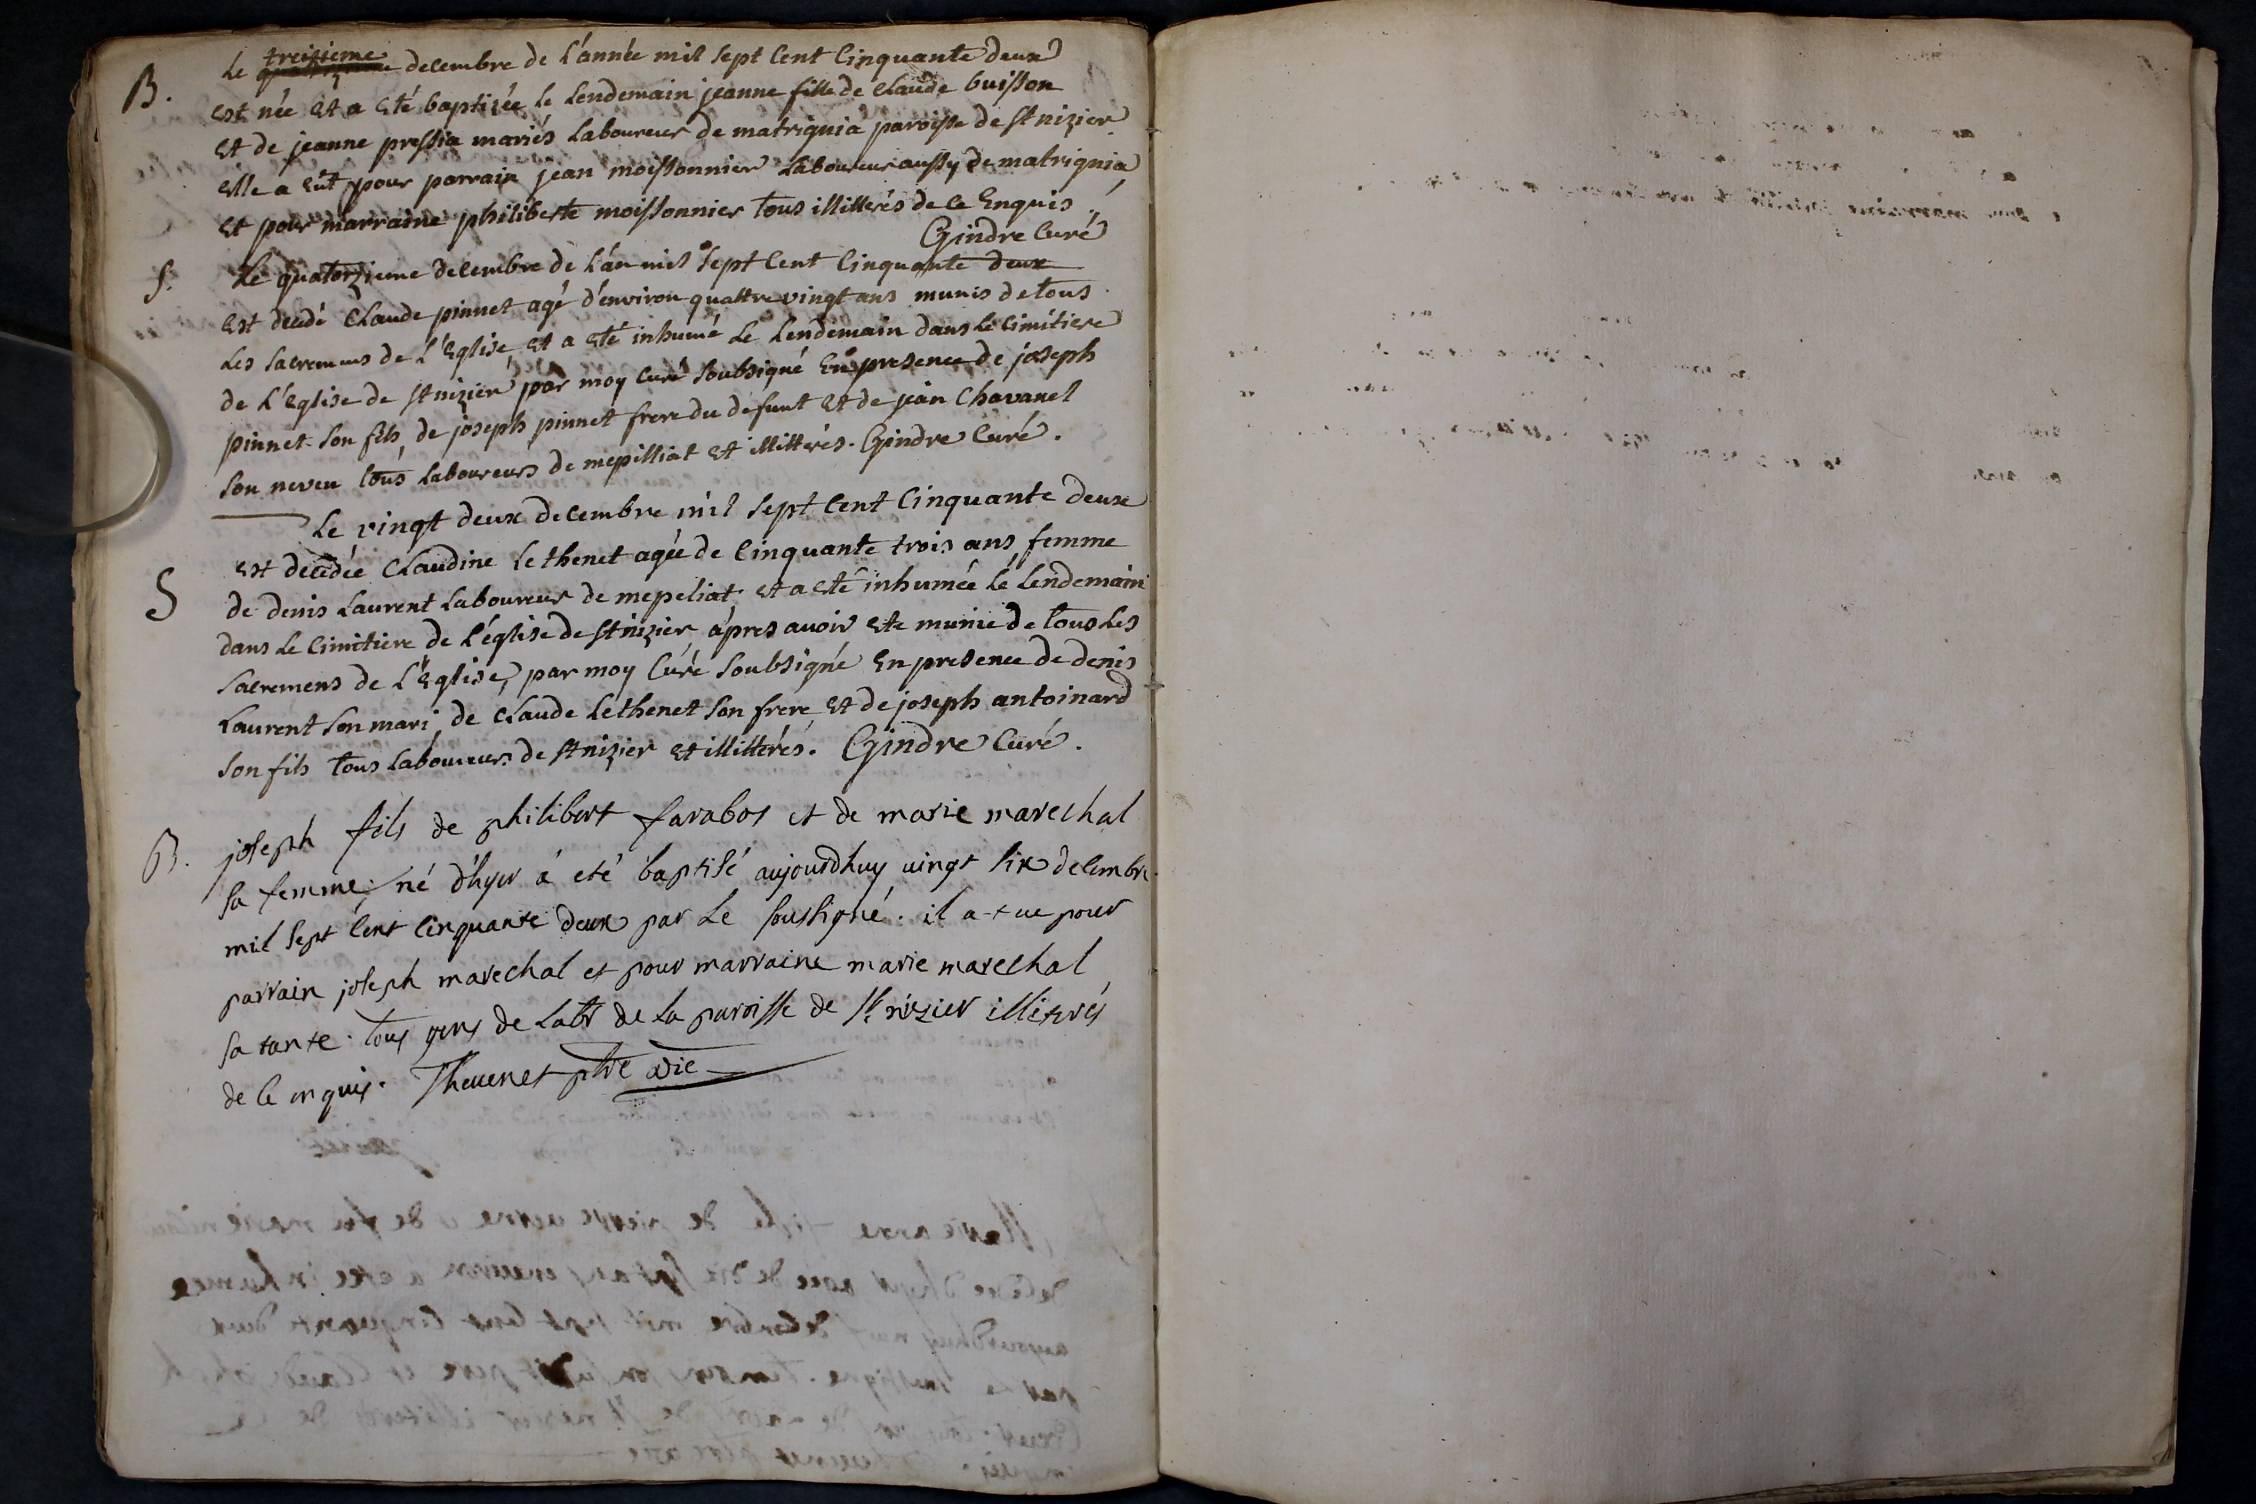 treizieme
B. Le quatorzieme decembre de l'année mil sept cent cinquante deux
est née et a eté baptizée le lendemain jeanne fille de claude buisson
et de jeanne pressia mariés laboureur de matrignia paroisse de st nizier
elle a eüt pour parrain jean moissonnier laboureur aussy de matrignia
et pour marraine philiberte moissonnier tous illitterés de ce enquis
Gindre curé
S. Le quatorzieme decembre de l'an mil sept cent cinquante deux
est decedé claude pinnet agé d'environ quattre vingt ans munis de tous
les sacremens de l'Eglise et a eté inhumé le lendemain dans le cimitiere
de l'Eglise de st nizier par moy curé soubsigné en presence de joseph
pinnet son fils, de joseph pinnet frere du defunt et de jean chavanel
son neveu tous laboureurs de mepilliat et illitterés. Gindre curé.
Le vingt deux decembre mil sept cent cinquante deux
est decedée claudine lethenet agée de cinquante trois ans, femme
S de denis laurent laboureur de mepeliat, et a eté inhumée le lendemain
dans le cimitiere de l'église de st nizier, apres avoir ete munie de tous les
sacremens de l'Eglise, par moy curé soubsigné en presence de denis
laurent son mari, de claude lethenet son frere et de joseph antoinard
son fils tous laboureurs de st nizier et illitterés. Gindre curé.
B. joseph fils de philibert farabos et de marie marechal
sa femme, né d'hyer á eté baptisé aujourdhuy vingt six decembre
mil sept cent cinquante deux par le soussigné. il a-t-ue pour
parrain joseph marechal et pour marraine marie marechal
sa tante. tous gens de labr de la paroisse de st nizier illiterés
de ce enquis. Thevenet ptre vic